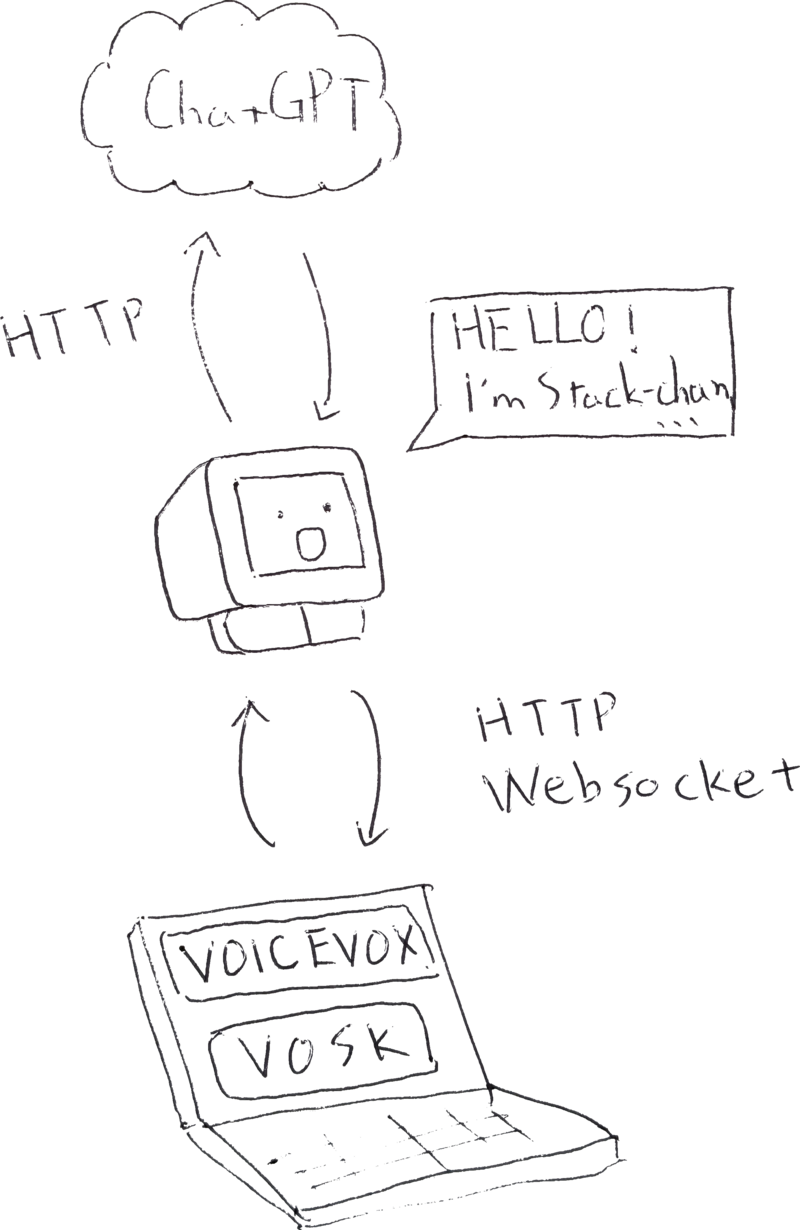 ChatGPT
HTTP
HELLO!
I'm Stack-chan
...
HTTP
Websocket
VOICEVOX
VOSK